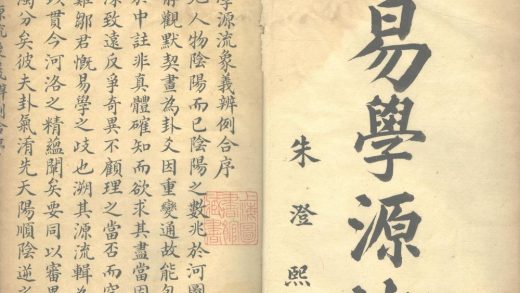 易學源
朱澄熙
學源流象義辨例合序
人物陰陽而已陰陽之數兆於河圖
觀默契畫為卦爻因重變通故能包
於中註非真體確知而欲求其盡當因
深致遠反爭奇異不顧理之當否而穿
鄒君慨易學之歧也溯其源流輯為
以貫今河洛之精蘊闡矣要同以審異
濁分矣彼夫卦氣淆先天陽順陰逆之
上海圖書館藏書